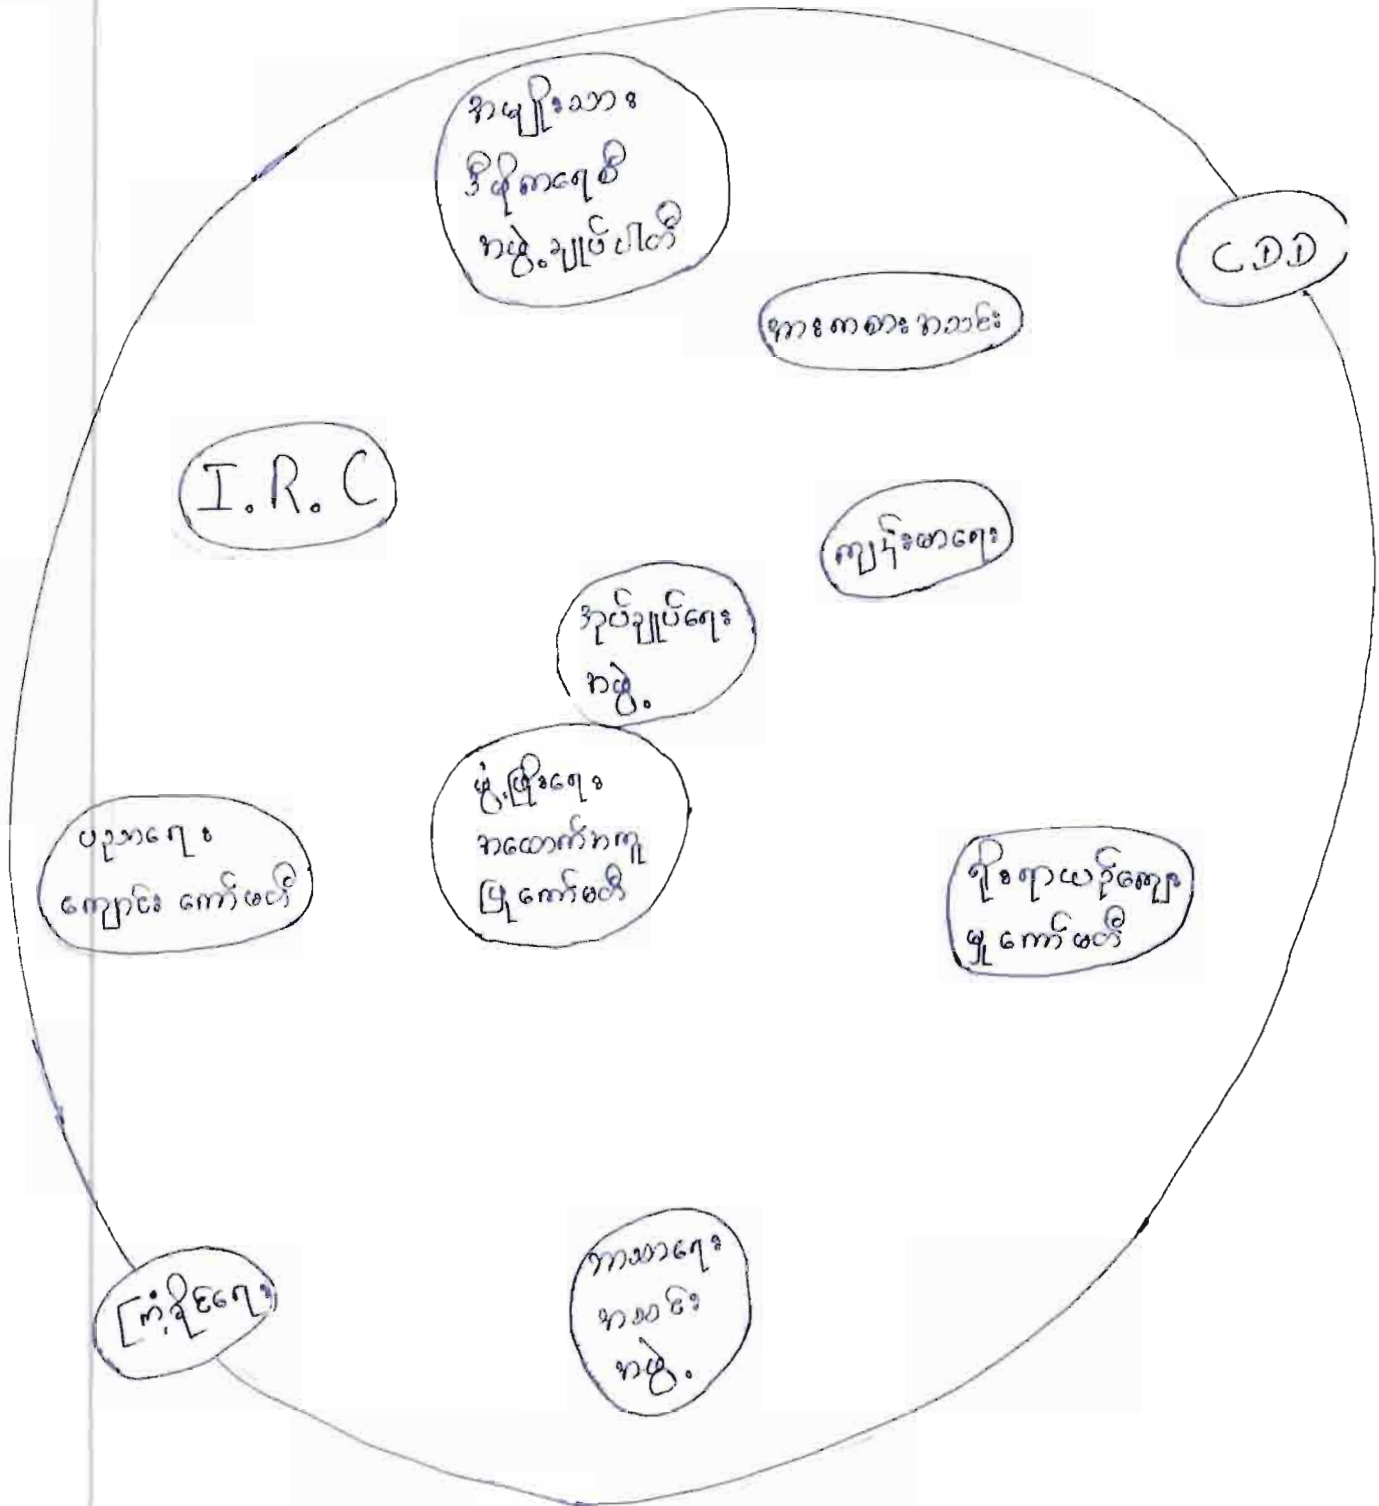 အမျိုးသား
ဒီမိုကရေစီ
အဖွဲ့ချုပ်ပါတီ
CDD
အားကစားအသင်း
I.R.C
ကျန်းမာရေး
အုပ်ချုပ်ရေး
အဖွဲ့
ဖွံ့ဖြိုးရေး
အထောက်အကူ
ပြုကော်မတီ
ပညာရေး
ကျောင်း ကော်မတီ
ရိုးရာယဉ်ကျေး
မှု ကော်မတီ
ကြံ့ခိုင်ရေး
ဘာသာရေး
အသင်း
အဖွဲ့